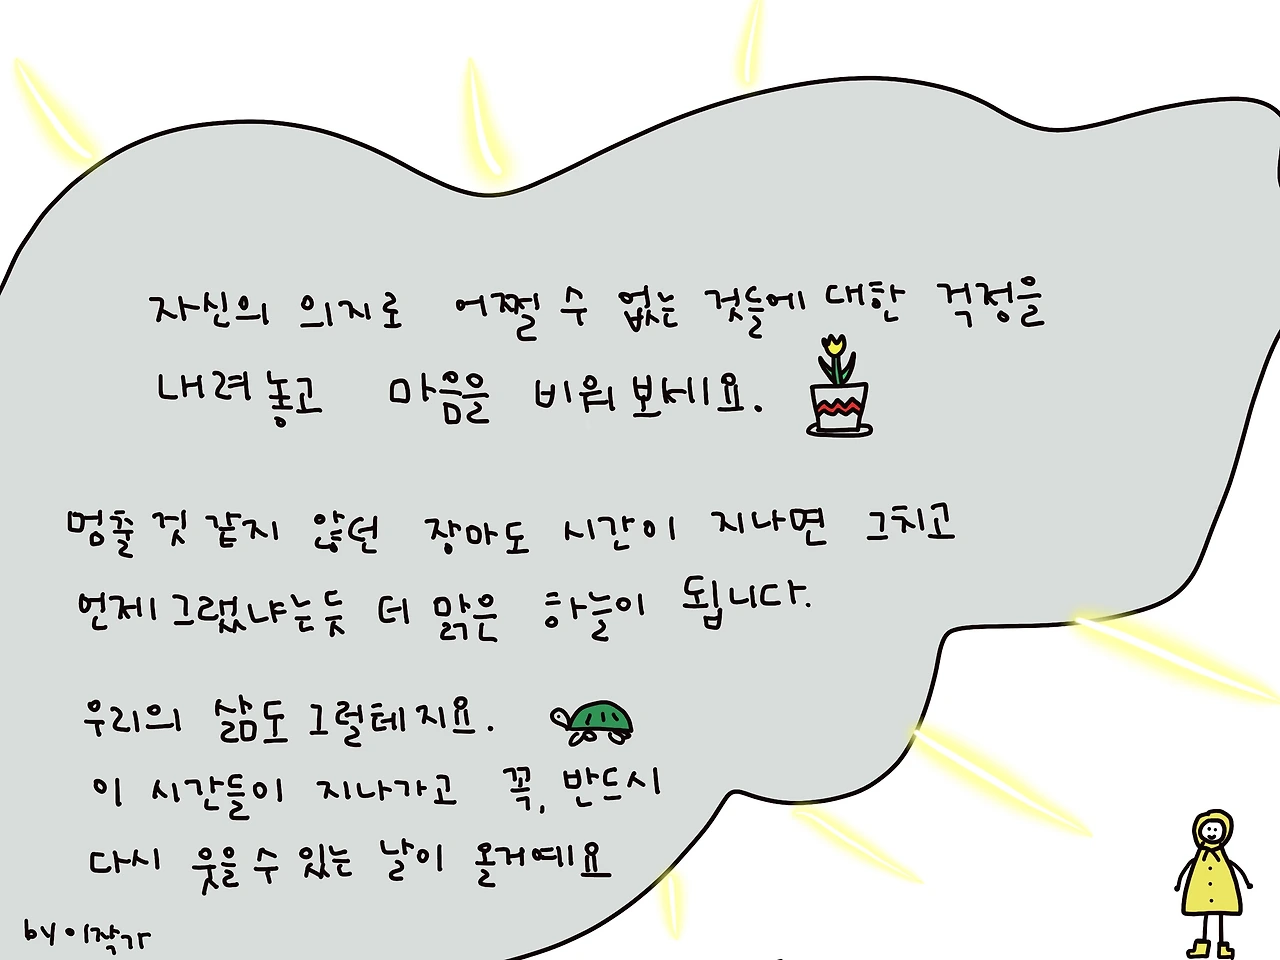 자신의 의지로 어쩔 수 없는 것들에 대한 걱정을
내려놓고 마음을 비워보세요.
멈출 것 같지 않던 장마도 시간이 지나면 그치고
언제그랬냐는듯 더 맑은 하늘이 됩니다.
우리의 삶도 그럴테지요.
이 시간들이 지나가고 꼭, 반드시
다시 웃을 수 있는 날이 올거예요
by 이작가